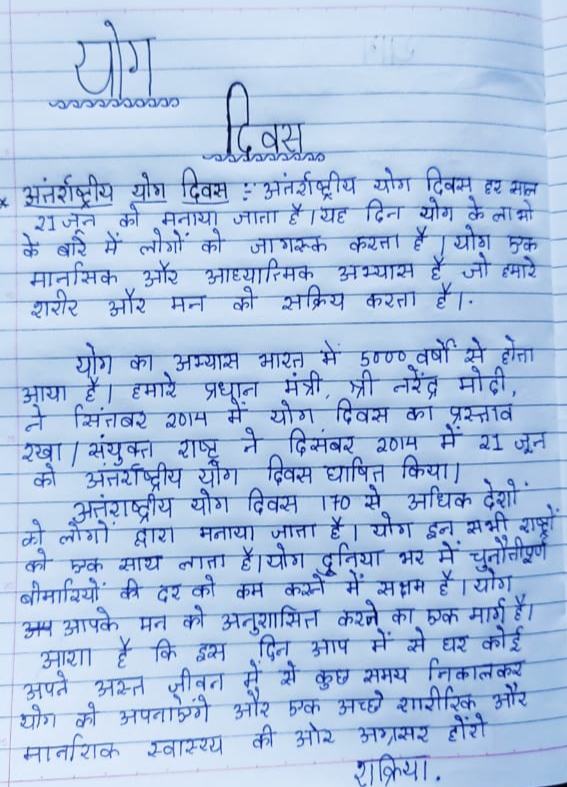 योग
दिवस
* अंतर्राष्ट्रीय योग दिवस :- अंतर्राष्ट्रीय योग दिवस हर साल
21 जून को मनाया जाता है। यह दिन योग के लाभो
के बारे में लोगों को जागरूक करता है। योग एक
मानसिक और आध्यात्मिक अभ्यास है जो हमारे
शरीर और मन को सक्रिय करता है।
योग का अभ्यास भारत में 5000 वर्षो से होता
आया है। हमारे प्रधान मंत्री, श्री नरेंद्र मोदी,
ने सितंबर 2014 में योग दिवस का प्रस्ताव
रखा। संयुक्त राष्ट्र ने दिसंबर 2014 में 21 जून
को अंतर्राष्ट्रीय योग दिवस घाषित किया।
अतंराष्ट्रीय योग दिवस 170 से अधिक देशों
के लोगों द्वारा मनाया जाता है। योग इन सभी राष्ट्रों
को एक साथ लाता है। योग दुनिया भर में चुनौतीपूर्ण
बीमारियों की दर को कम करने में सक्षम है। योग
आपके मन को अनुशासित करने का एक मार्ग है।
आशा है कि इस दिन आप में से घर कोई
अपने अस्त जीवन में से कुछ समय निकालकर
योग को अपनाएंगे और एक अच्छे शारीरिक और
मानसिक स्वास्थ्य की ओर अग्रसर होंगे
शुक्रिया.